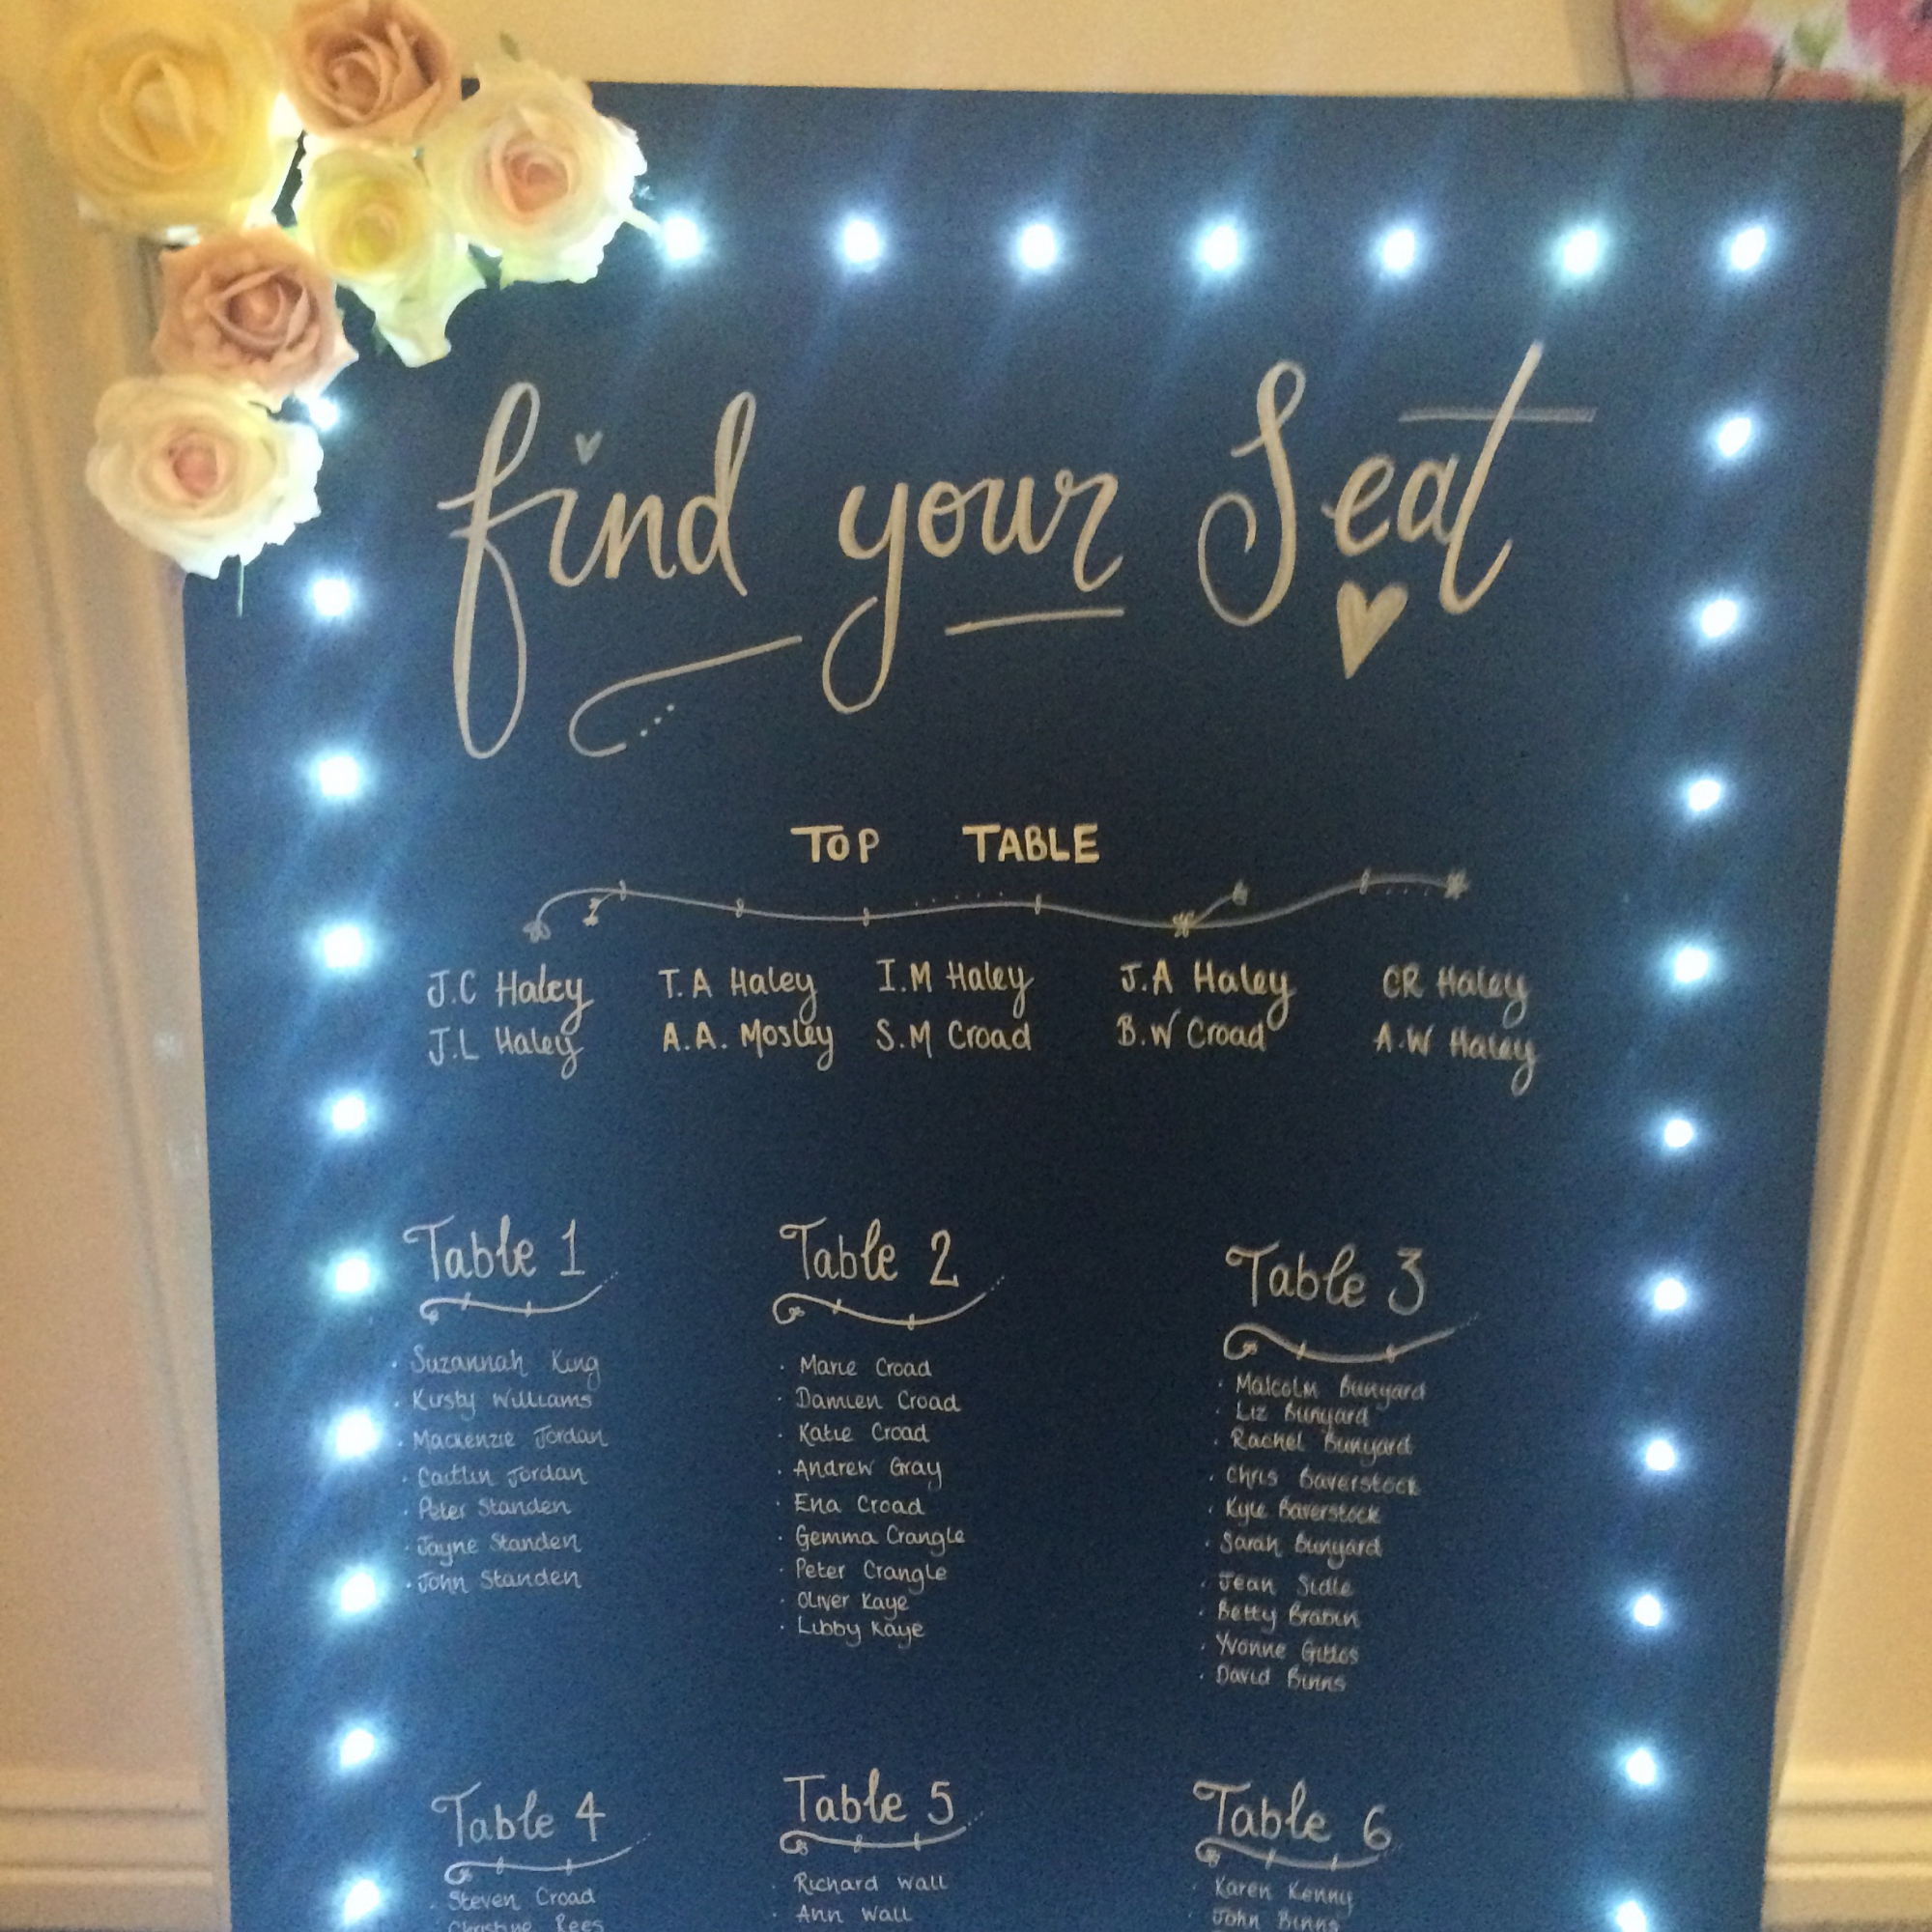 find your Seat
TOP TABLE
J.C Haley
J.L Haley
T.A Haley
A.A. Mosley
I.M Haley
S.M Croad
J.A Haley
B.W Croad
CR Haley
A.W Haley
Table 1
· Suzannah King
· Kirsty Williams
· Mackenzie Jordan
· Caitlin Jordan
· Peter Standen
· Jayne Standen
· John Standen
Table 2
· Marie Croad
· Damien Croad
· Katie Croad
· Andrew Gray
· Ena Croad
· Gemma Crangle
· Peter Crangle
· Oliver Kaye
· Libby Kaye
Table 3
· Malcolm Bunyard
· Liz Bunyard
· Rachel Bunyard
· Chris Baverstock
· Kyle Baverstock
· Sarah Bunyard
· Jean Sidle
· Betty Brabin
· Yvonne
· David Binns
Table 4
· Steven Croad
Christine Rees
Table 5
· Richard Wall
· Ann Wall
Table 6
· Karen Kenny
· John Binns